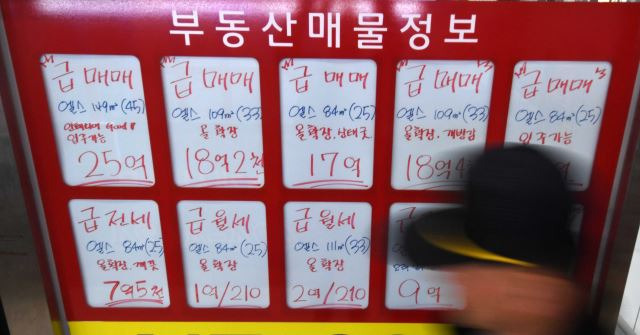 부동산매물정보
급매매
엘스 149㎡(45)
입주가능
25억
급매매
엘스 109㎡(33)
올확장
18억2천
급매매
엘스 84㎡(25)
올확장, 상태굿
17억
급매매
엘스 109㎡(33)
올확장, 개방감
18억4
급매매
엘스 84㎡(25)
올확장
입주가능
급전세
엘스 84㎡(25)
올확장, 개굿
7억5천
급월세
엘스 84㎡(25)
올확장
1억/210
급월세
엘스 111㎡(33)
올확장
2억/210
급
9억